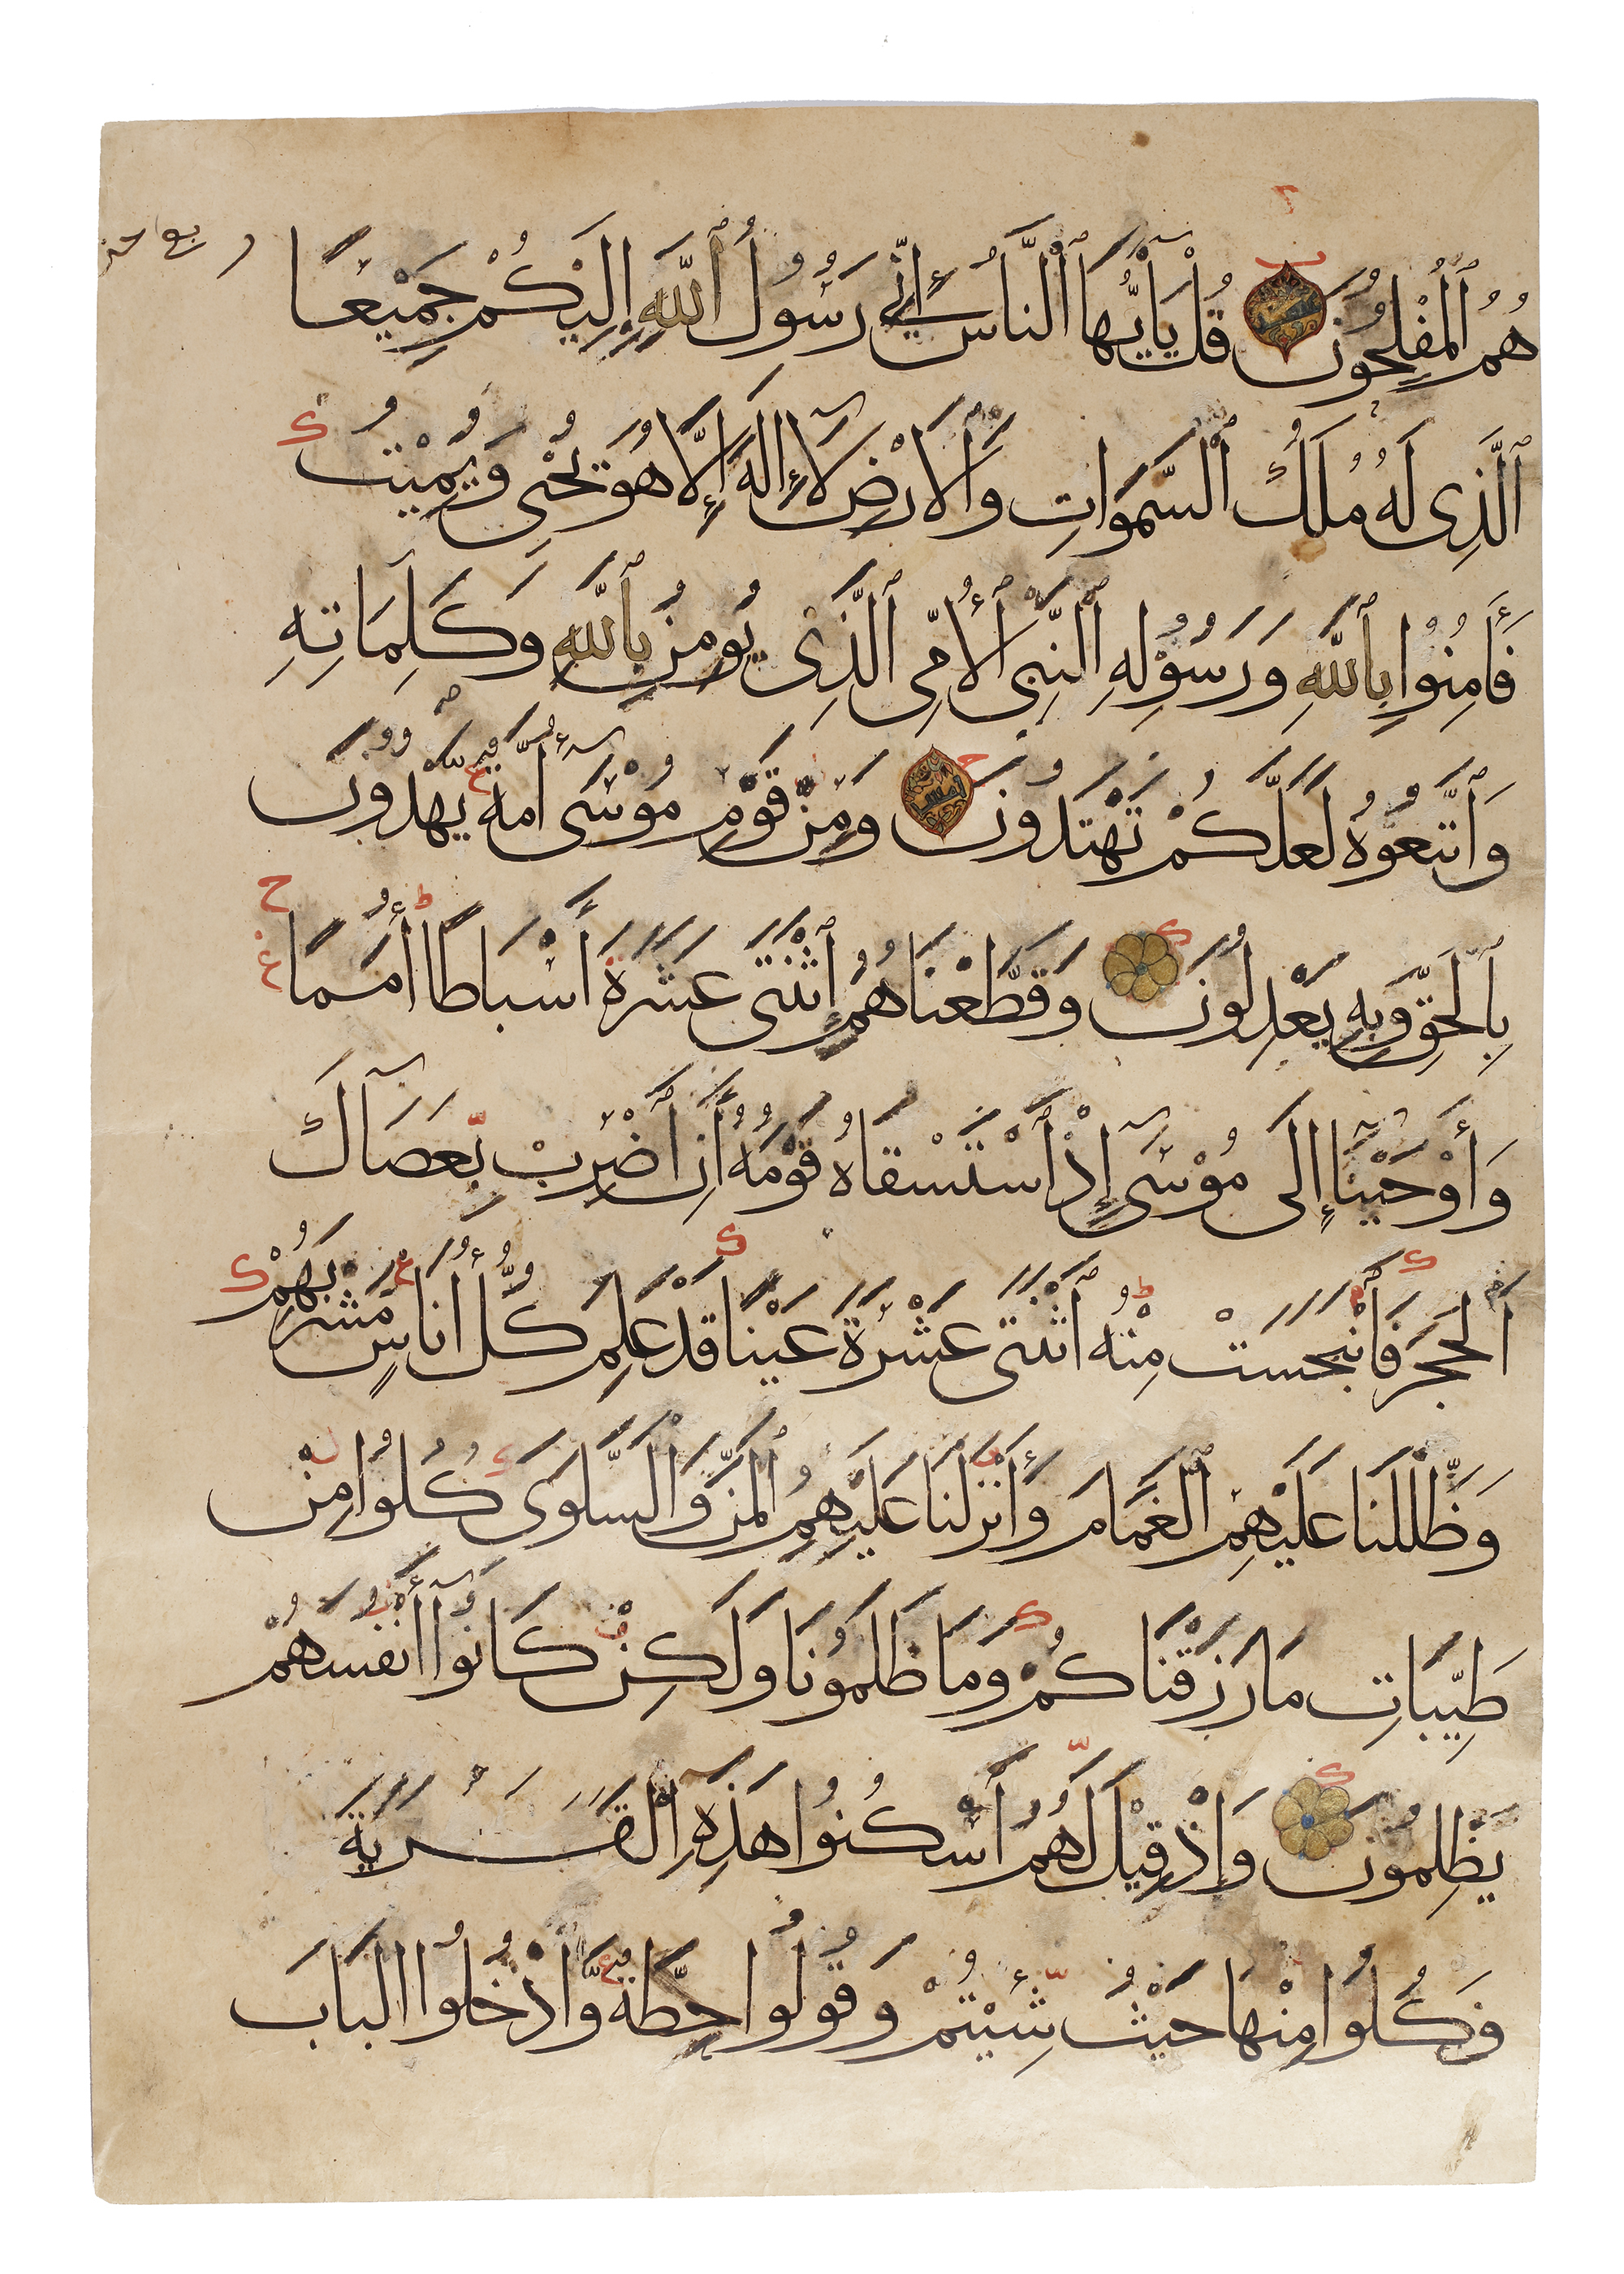 هُمُ ٱلْمُفْلِحُونَ قُلْ يَاأَيُّهَا ٱلنَّاسُ إِنِّي رَسُولُ ٱللَّهِ إِلَيْكُمْ جَمِيْعًا
ٱلَّذِى لَهُ مُلْكُ ٱلسَّمَوَاتِ وَٱلْأَرْضِ لَآ إِلَهَ إِلَّا هُوَ يُحْيِى وَيُمِيْتُ
فَأَمِنُوا بِٱللَّهِ وَرَسُوْلِهِ ٱلنَّبِىِّ ٱلْأُمِّىِّ ٱلَّذِىْ يُومِنُ بِٱللَّهِ وَكَلِمَاتِهِ
وَٱتَّبِعُوْهُ لَعَلَّكُمْ تَهْتَدُونَ وَمِنْ قَوْمِ مُوْسَىٓ أُمَّةٌ يَهْدُوْنَ
بِٱلْحَقِّ وَبِهِ يَعْدِلُونَ وَقَطَّعْنَاهُمُ ٱثْنَتَىْ عَشْرَةَ أَسْبَاطًا أُمَمًا
وَأَوْحَيْنَآ إِلَى مُوْسَىٓ إِذِ ٱسْتَسْقَاهُ قَوْمُهُ أَنِ ٱضْرِبْ بِّعَصَاكَ
ٱلْحَجَرَ فَٱنْبَجَسَتْ مِنْهُ ٱثْنَتَى عَشْرَةَ عَيْنًا قَدْ عَلِمَ كُلُّ أُنَاسٍ مَشْرَبَهُمْ
وَظَلَّلْنَا عَلَيْهِمُ ٱلْغَمَامَ وَأَنْزَلْنَا عَلَيْهِمُ ٱلْمَنَّ وَٱلسَّلْوَى كُلُوا مِنْ
طَيِّبَاتِ مَا رَزَقْنَاكُمْ وَمَا ظَلَمُوْنَا وَلَكِنْ كَانُوآ أَنْفُسَهُمْ
يَظْلِمُونَ وَإِذْ قِيْلَ لَهُمُ ٱسْكُنُوا هَذِهِ ٱلْقَرْيَةَ
وَكُلُوا مِنْهَا حَيْثُ شِئْتُمْ وَقُولُوا حِطَّةٌ وَّادْخُلُوا الْبَابَ